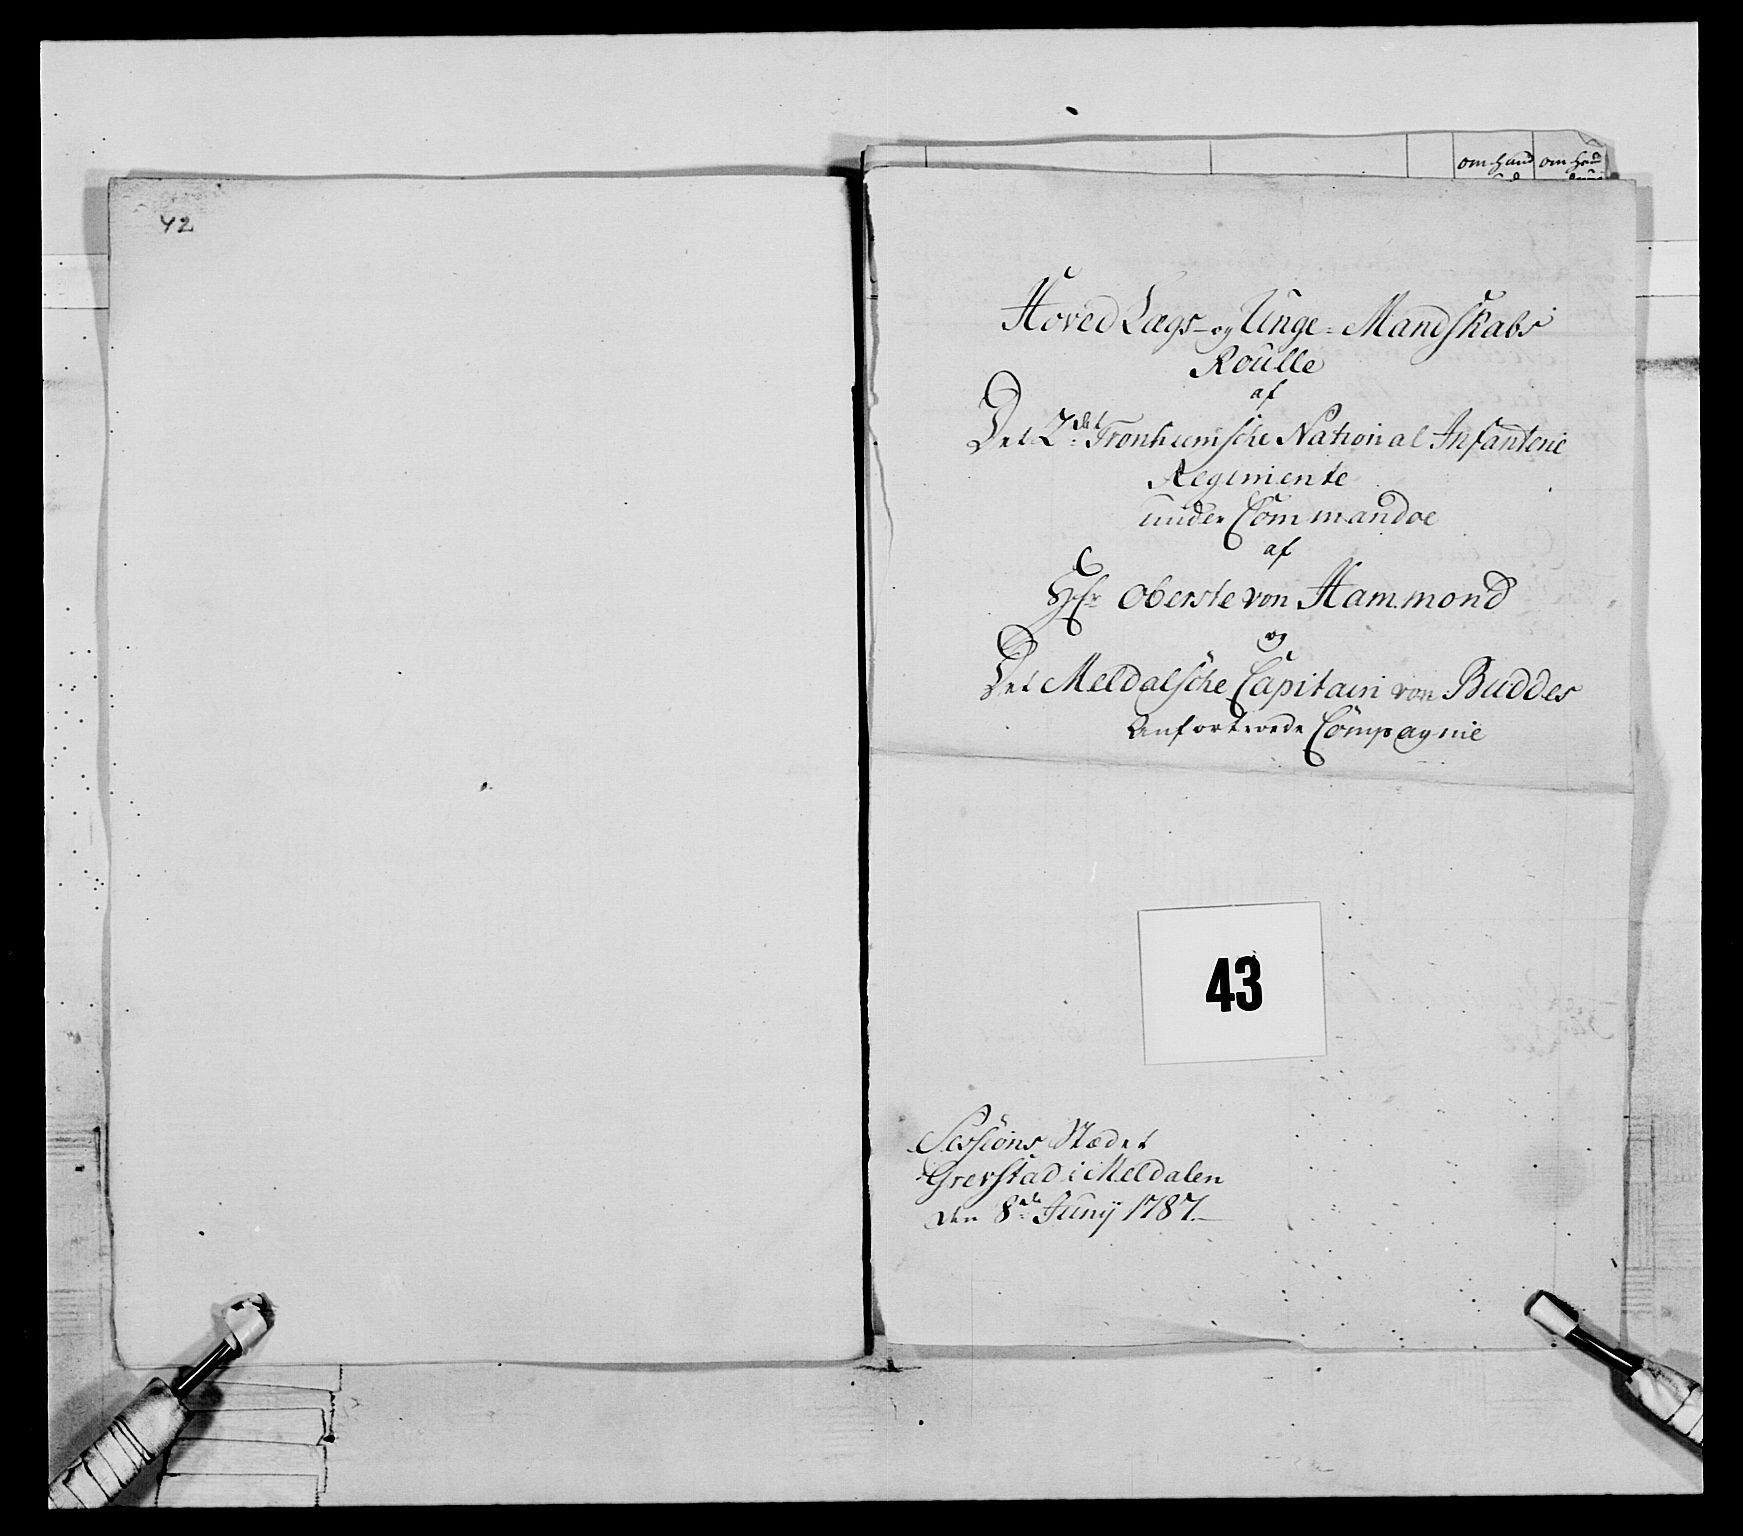 42
om haand om haand
Hoved Lægs- og Unge-Mandskabs
Roulle
af
Det 2det Tronhiemsche National Infanterie
Regimente
under Commandoe
af
Hr Oberste von Hammond
og
Det Meldalsche Capitain von Buddes
Anfortroede Compagnie
43
Sessions Stædet
Grefstad i Meldalen
den 8de Junij 1787